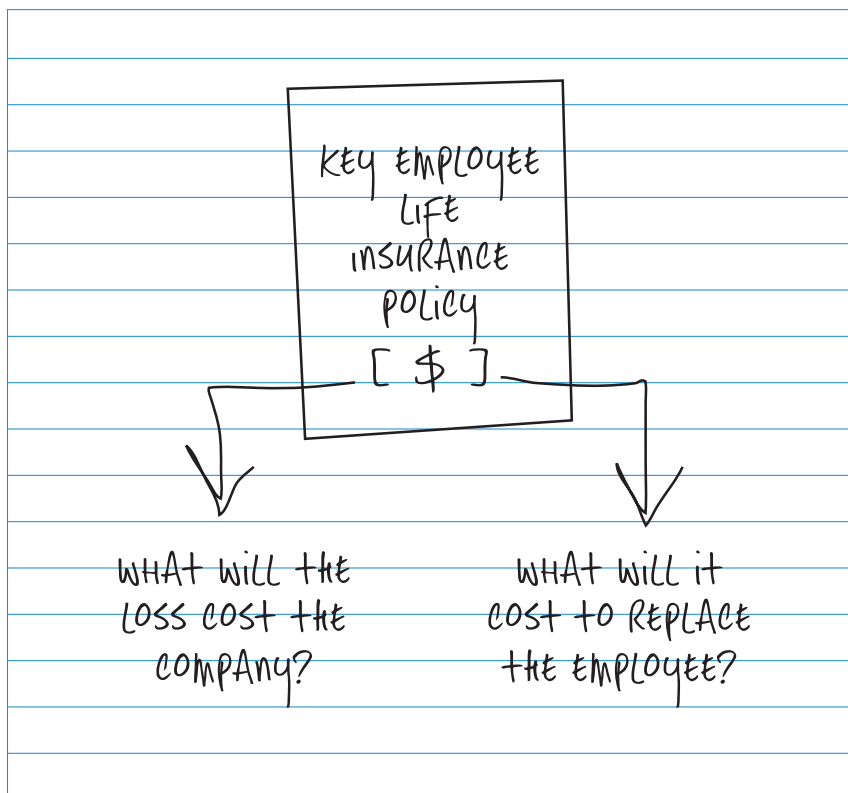 KEY EMPLOYEE
LIFE
INSURANCE
POLICY
[ $ ]
WHAT WILL THE
LOSS COST THE
COMPANY?
WHAT WILL IT
COST TO REPLACE
THE EMPLOYEE?